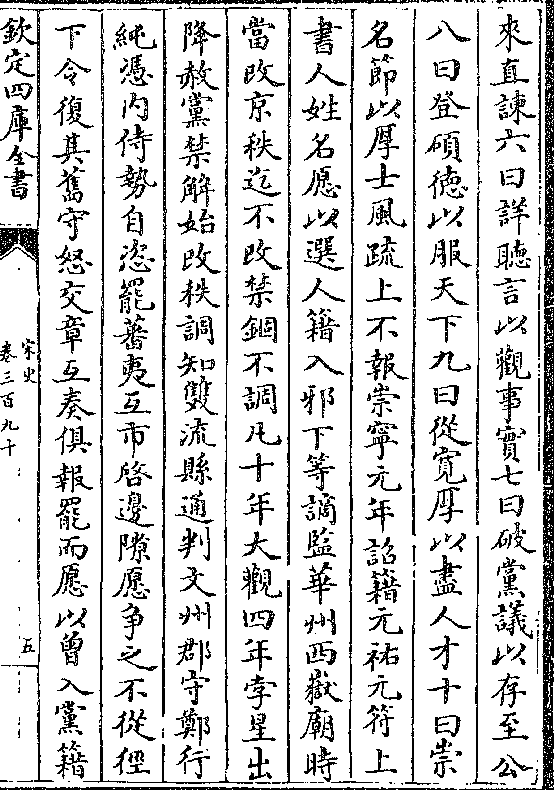 來直諫六曰詳聽言以觀事實七曰破黨議以存至公
八曰登碩德以服天下九曰從寛厚以盡人才十曰崇
名節以厚士風疏上不報崇寧元年詔籍元祐元符上
書人姓名愿以選人籍入邪下等謫監華州西嶽廟時
當改京秩迄不改禁錮不調凡十年大觀四年孛星出
降赦黨禁解始改秩調知雙流縣通判文州郡守鄭行
純憑内侍勢自恣罷蕃夷互市啓邊隙愿争之不從徑
下令復其舊守怒交章互奏俱報罷而愿以曾入黨籍
欽定四庫全書
宋史
卷三百九十
五